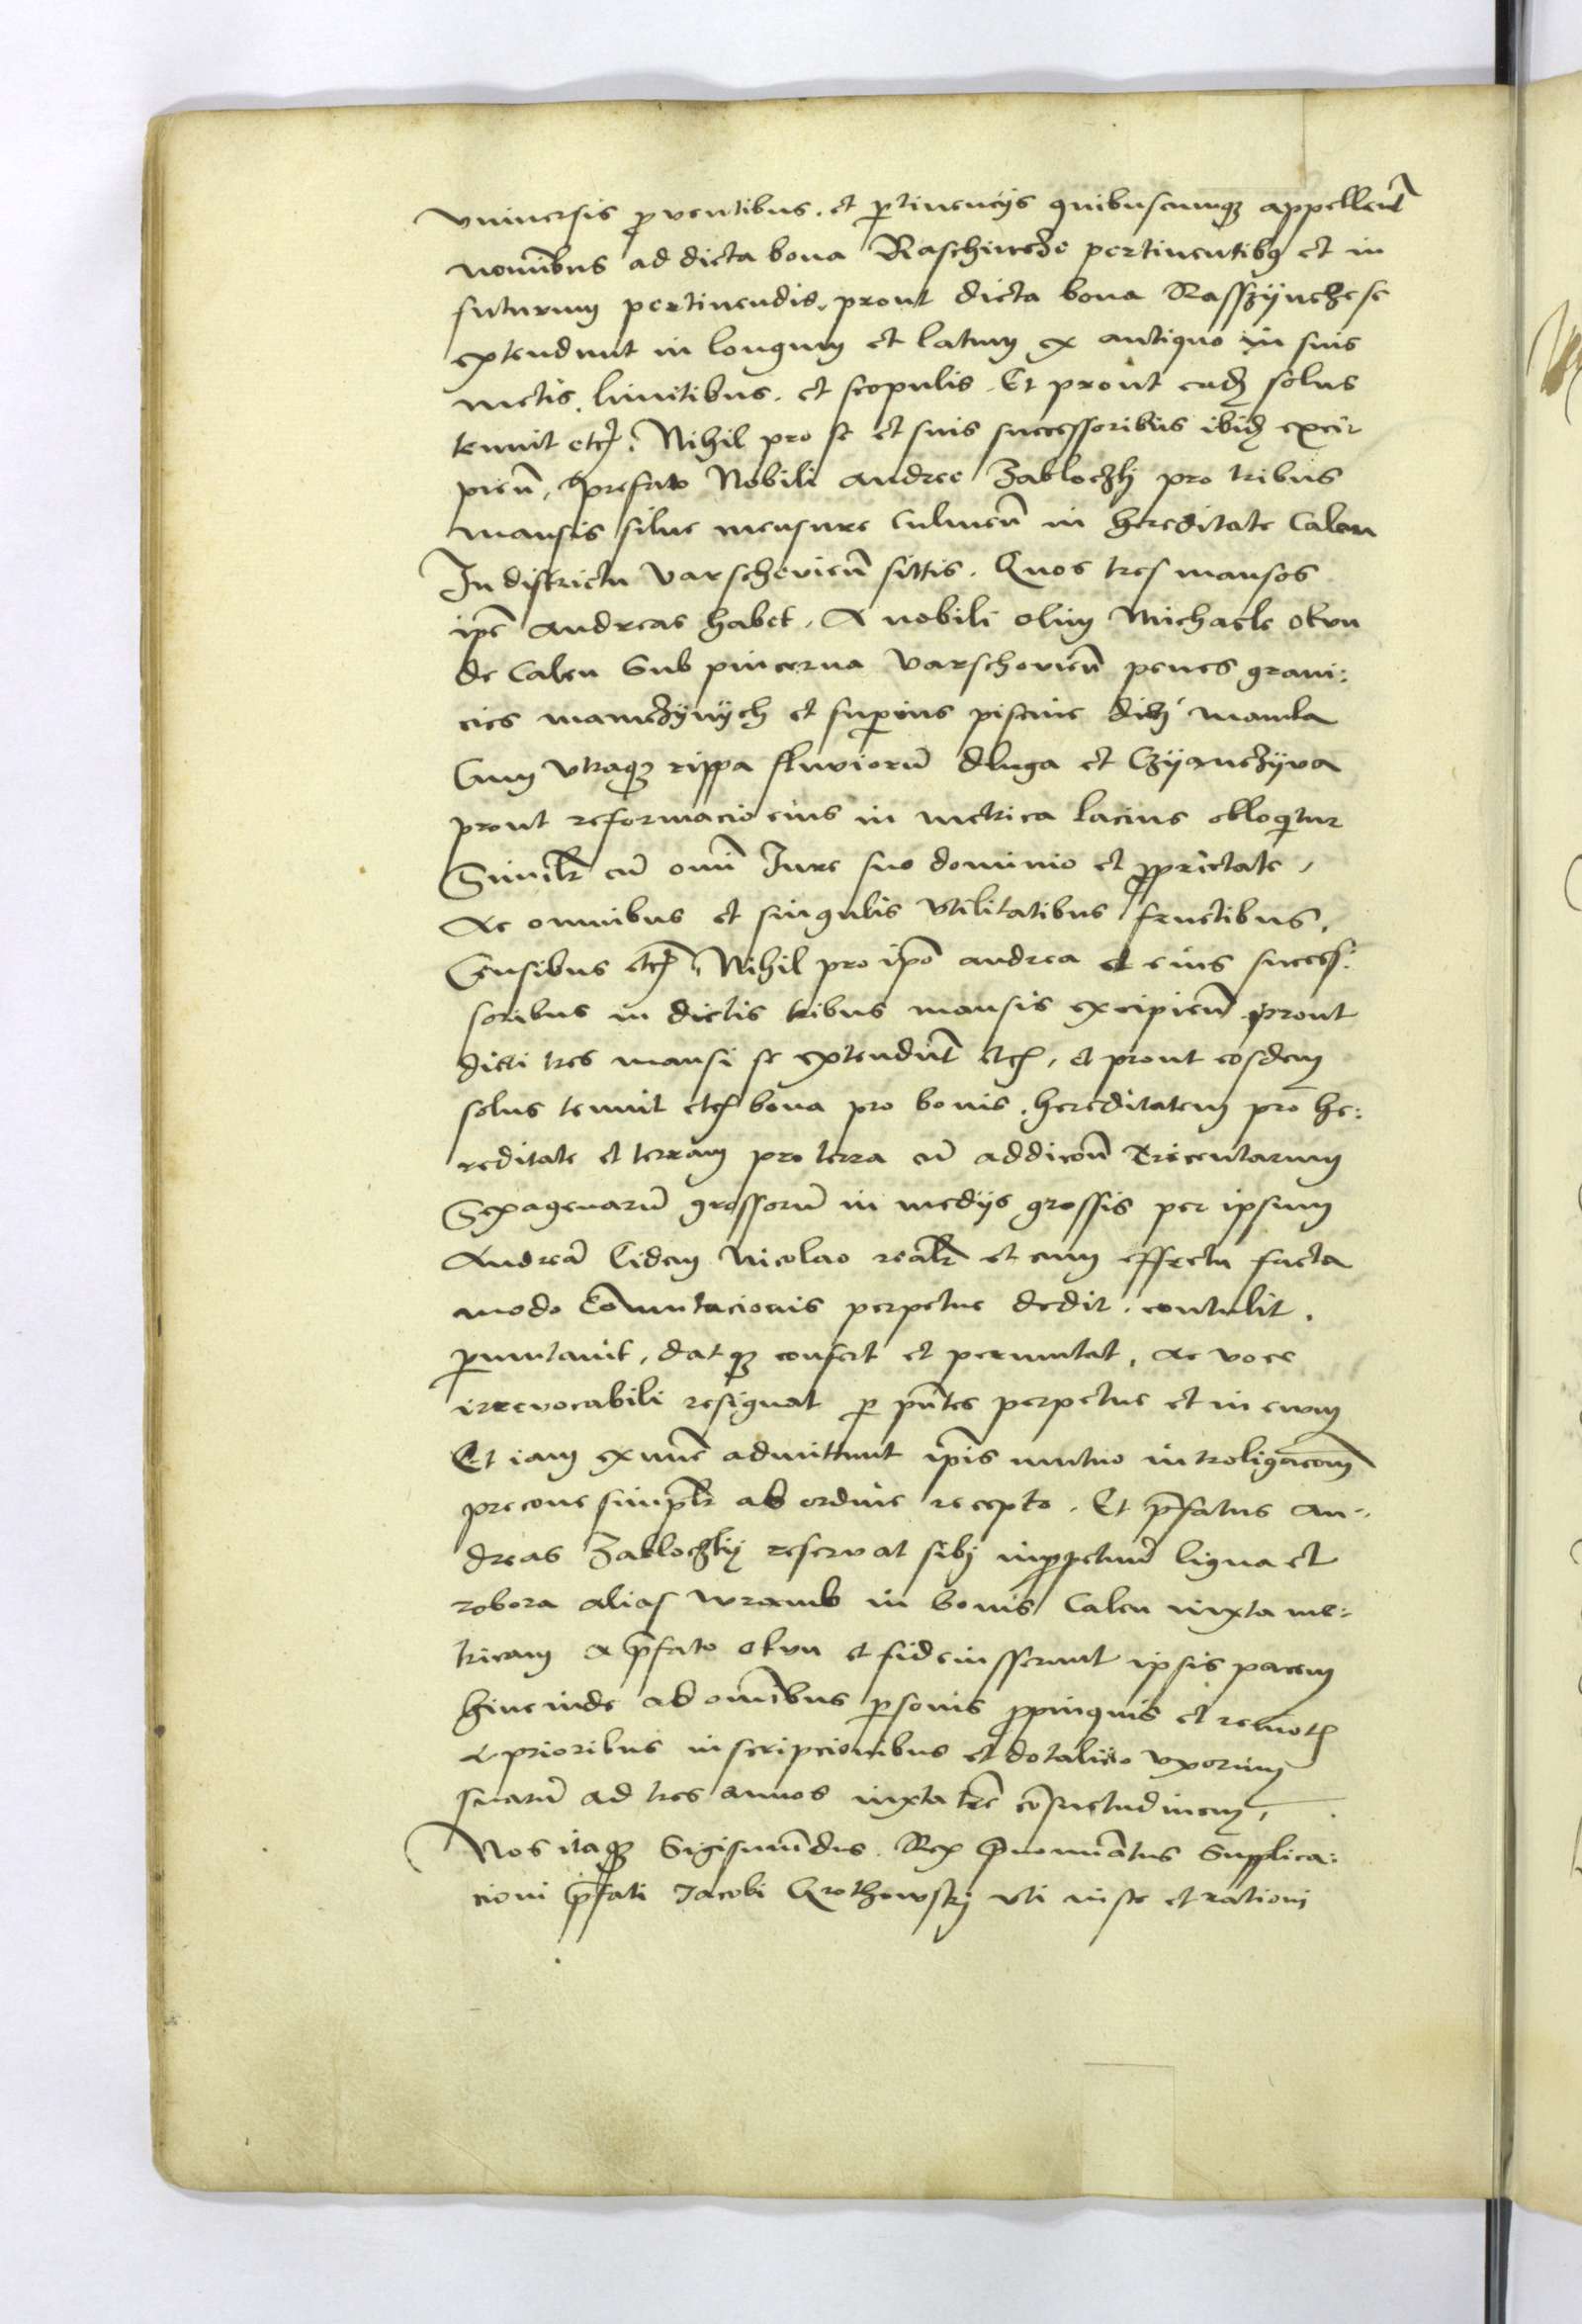 vniuersis proventibus. et pertinencijs quibuscumque appellent̃
nomĩbus ad dicta bona Raschincze pertinentibus et in
futurum pertinendis. prout dicta bona Rasszÿncze se
extendunt in longum et latum ex antiquo in suis
metis, limitibus. et scopulis. Et prout eadem solus
tenuit etc. Nihil pro se et suis successoribus ibidem exci-
pieñ, prefato Nobili andree Zabloczkj pro tribus
mansis silue mensure Culmeñ in hereditate Calen
In districtu varschovieñ sittis. Quos tres mansos
ip̃e Andreas habet. A nobili olim Michaele okvn
de Calen Sub pincerna varschovieñ penes grani:
cies mamczÿnÿch et superius piscine dict mamka
Cum vtraque rippa fluuiorũ dluga et Czÿanczÿva
prout reformacio eius in metrica lacius obloquitur
Simil̃r cũ om̃i Jure suo dominio et proprietate,
Ac omnibus et singulis vtilitatibus fructibus,
Censibus etc. Nihil pro ip̃o andrea et eius succes:
soribus in dictis tribus mansis excipieñ prout
dicti tres mansi se extendũt etc, et prout eosdem
solus tenuit etc bona pro bonis. hereditatem pro he:
reditate et terram pro terra cũ addicõn Tricentarum
Sexagenarũ grossorũ in medijs grossis per ipsum
Andreã Eidem Nicolao real̃r et cum effectu facta
modo Cõmutacionis perpetue dedit. contulit.
permutauit, datque confert et permutat, ac voce
irrevocabili resignat per pñtes perpetue et in evum
Et iam ex nũc admittunt ip̃is mutuo introligacõem
precone simpl̃r ab ordine recepto. Et p̃fatus An-
dreas Zabloczkij reservat sibj inperpetuũ ligna et
robora alias wramb in bonis Calen iuxta me:
tricam a p̃fato okvn et fideiusserunt ipsis pacem
hincinde ab om̃ibus personis propinquis et remotis
A prioribus inscripcionibus et dotalicio vxorum
suarũ ad tres annos iuxta tr̃e cõsuetudinem,
Nos itaque Sigismũdus. Rex Prenomĩatus Supplica:
cioni p̃fati Jacobi Grothowskj vti iuste et rationi